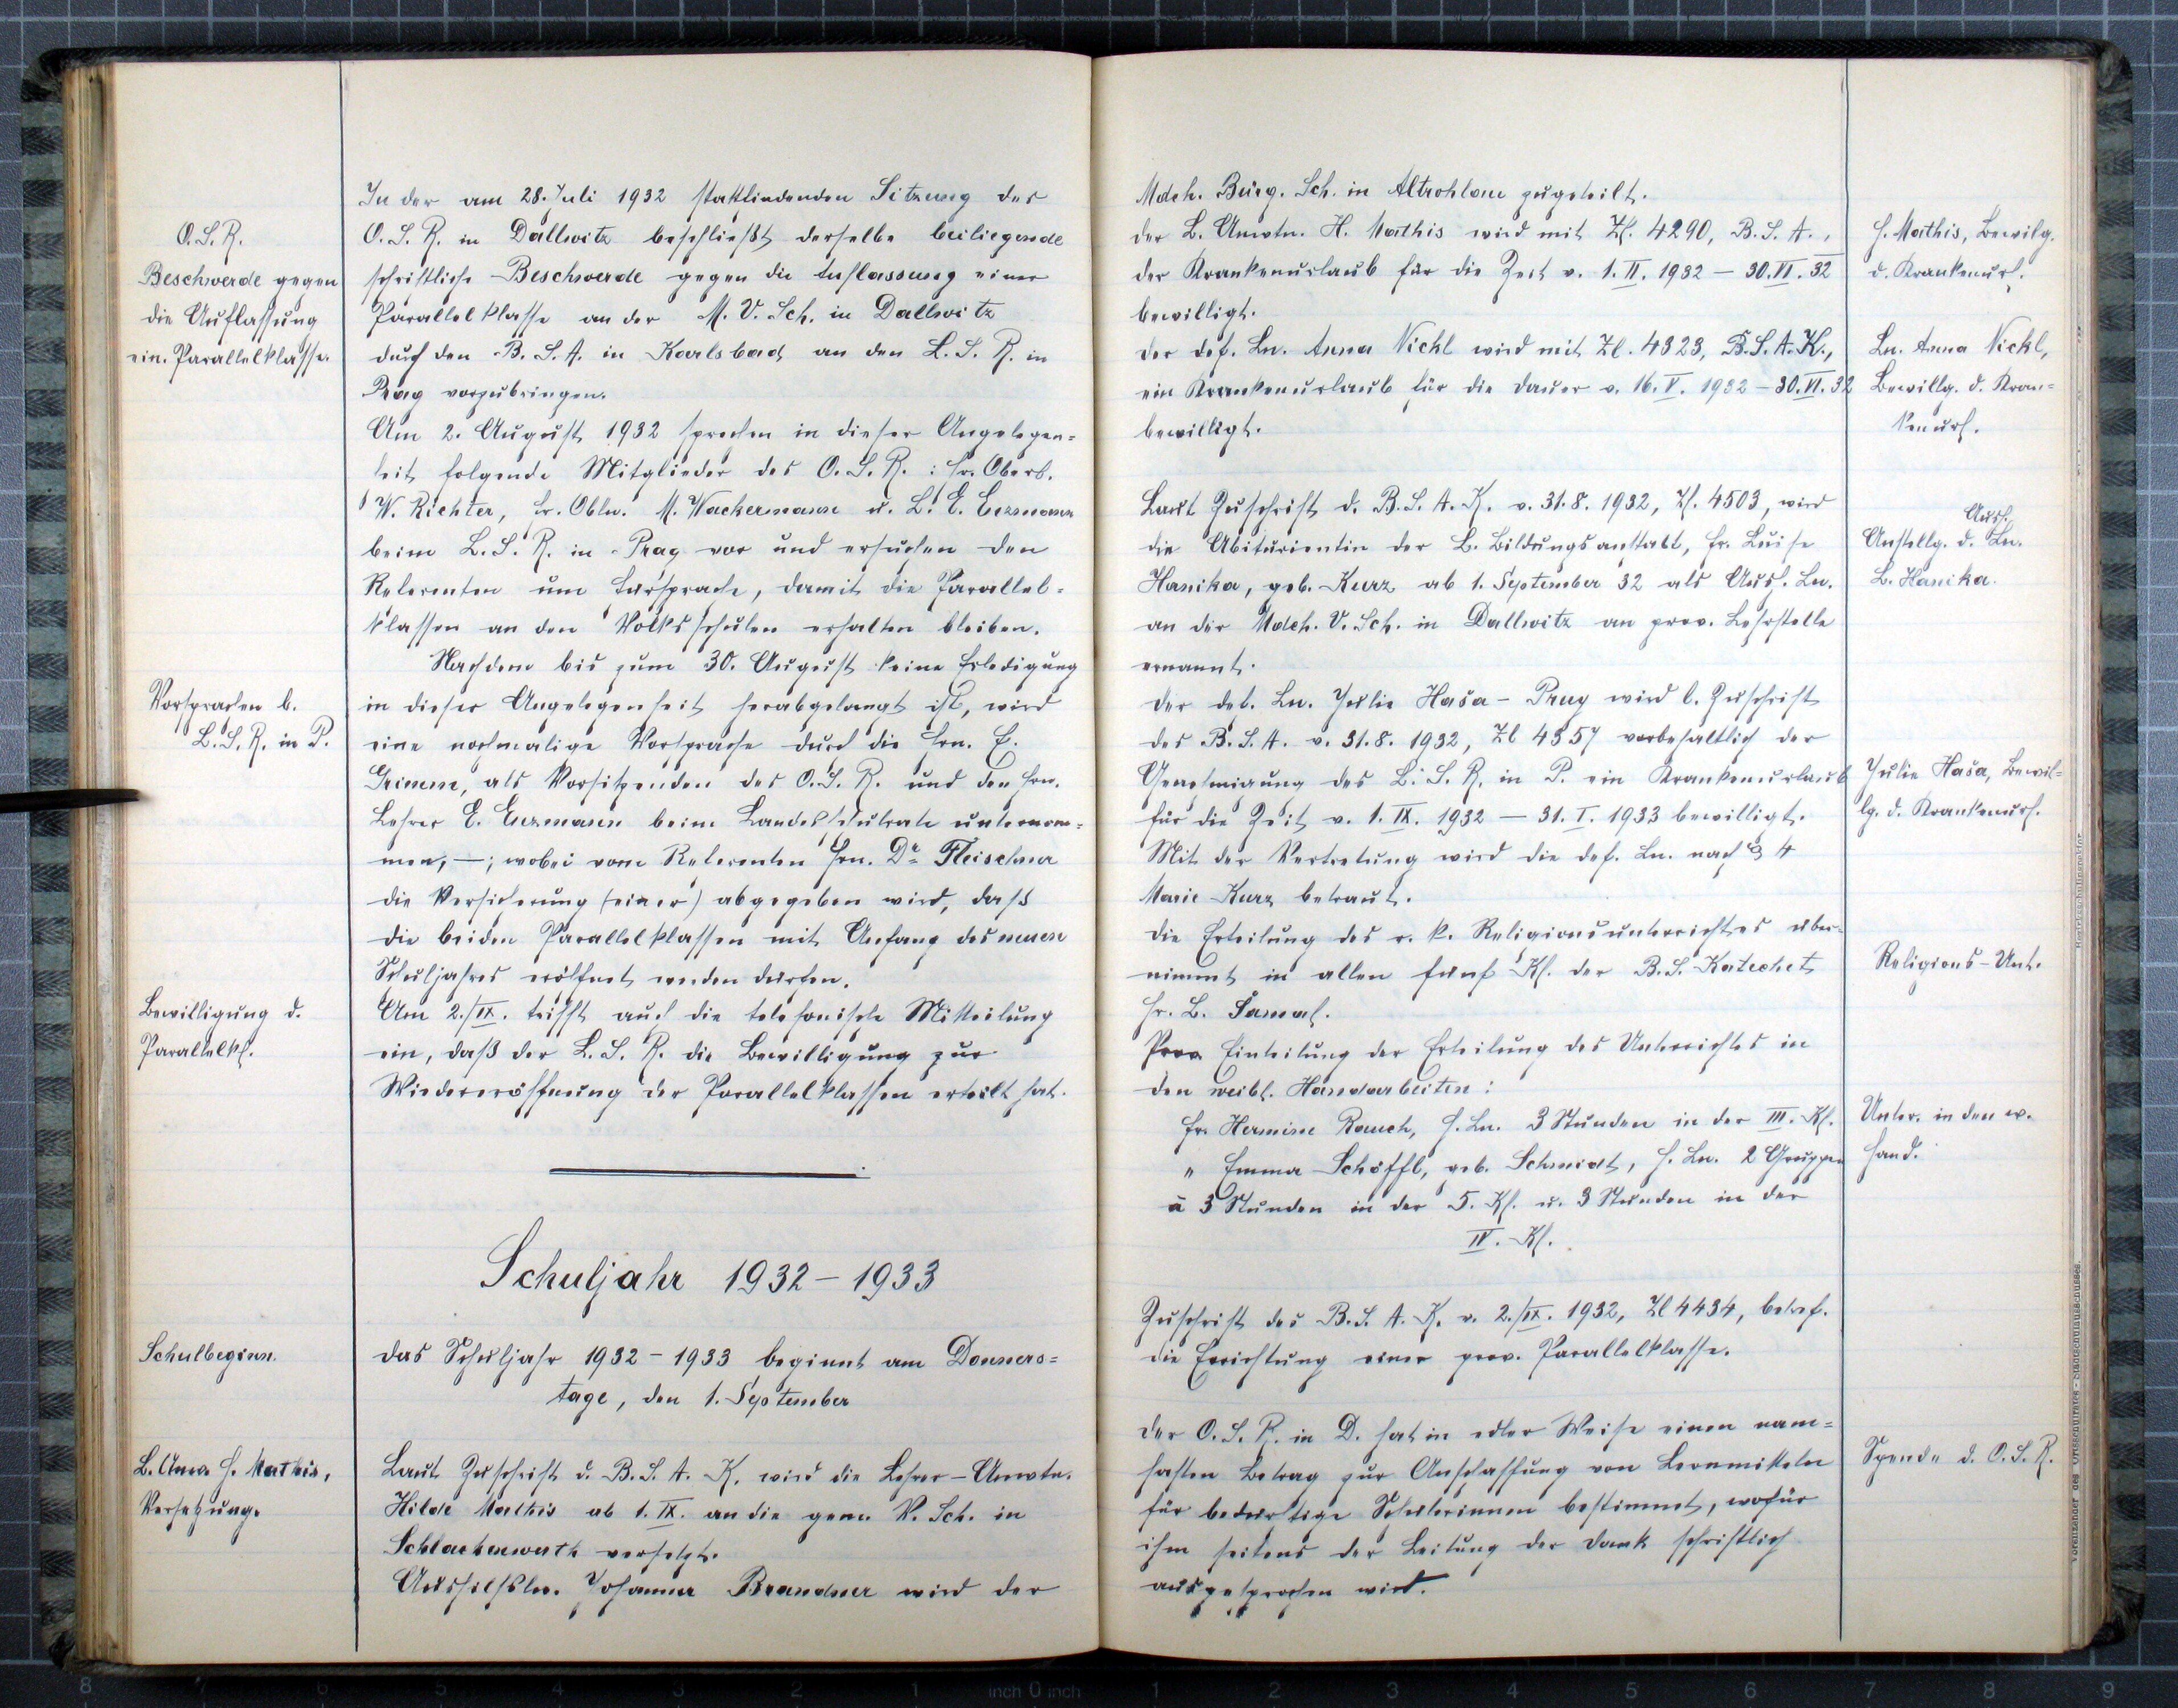 In der am 28. Juli 1932 stattfindenden Sitzung des
O.S.R.
O.S.R. in Dallwitz beschließt derselbe beiliegende
Beschwerde gegen
schriftliche Beschwerde gegen die Auflassung einer
die Auflassung
Parallelklasse an der M. V. Sch. in Dallwitz
ein. Parallelklasse.
durch den B.S.A. in Karlsbad an den L.S.R. in
Prag vorzubringen.
Am 2. August 1932 sprechen in dieser Angelegen=
heit folgende Mitglieder des O.S.R.: Hr. Oberl.
W. Richter, Fr. Obln. M. Wackermann u. L. E. Enzmann
beim L.S.R. in Prag vor und ersuchen den
Referenten um Fürsprache, damit die Parallel=
klassen an den Volksschulen erhalten bleiben.
Nachdem bis zum 30. August keine Erledigung
Vorsprachen b.
in dieser Angelegenheit herabgelangt ist, wird
L.S.R. in P.
eine nochmalige Vorsprache durch die Hrn. E.
Grimm, als Vorsitzenden des O.S.R. und den Hrn.
Lehrer E. Enzmann beim Landesschulrate unternom=
men, —; wobei vom Referenten Hrn. Dr. Fleischner
die Versicherung (einer) abgegeben wird, dass
die beiden Parallelklassen mit Anfang des neuen
Schuljahres eröffnet werden dürfen.
Bewilligung d.
Am 2./IX. trifft auch die telefonische Mitteilung
Parallelkl.
ein, daß der L.S.R. die Bewilligung zur
Wiedereröffnung der Parallelklassen erteilt hat.
Schuljahr 1932 – 1933
Schulbeginn.
Das Schuljahr 1932 – 1933 beginnt am Donners=
tage, den 1. September
L. Anw. H. Mathis,
Laut Zuschrift d. B.S.A. K. wird die Lehrer-Anwtn.
Versetzung.
Hilde Mathis ab 1. IX. an die gem. V. Sch. in
Schlackenwerth versetzt.
Aushilfsln. Johanna Brandner wird der
Mdch. Bürg. Sch. in Altrohlau zugeteilt.
Der L. Anwtn. H. Mathis wird mit Zl. 4290, B.S.A.,
H. Mathis, Bewilg.
der Krankenurlaub für die Zeit v. 1. II. 1932 – 30. VI. 32
d. Krankenurl.
bewilligt.
Der def. Ln. Anna Nickl wird mit Zl. 4323, B.S.A.K.,
Ln. Anna Nickl,
ein Krankenurlaub für die Dauer v. 16. V. 1932 – 30. VI. 32
Bewillg. d. Kran=
bewilligt.
kenurl.
Laut Zuschrift d. B.S.A. K. v. 31.8. 1932, Zl. 4503, wird
Aush.
die Abiturientin der L. Bildungsanstalt, Fr. Luise
Anstellg. d. Ln.
Hanika, geb. Kurz ab 1. September 32 als Aush. Ln.
L. Hanika.
an der Mdch. V. Sch. in Dallwitz an prov. Lehrstelle
ernannt.
Der def. Ln. Julie Haša – Prug wird l. Zuschrift
des B.S.A. v. 31.8. 1932, Zl 4357 vorbehaltlich der
Genehmigung des L.S.R. in P. ein Krankenurlaub
Julie Haša, Bewil=
für die Zeit v. 1. IX. 1932 — 31. I. 1933 bewilligt.
lg. d. Krankenurl.
Mit der Vertretung wird die def. Ln. nach § 4
Marie Kurz betraut.
Die Erteilung des r. k. Religionsunterrichtes über=
nimmt in allen fünf Kl. der B.S. Katechet
Religions-Unt.
Hr. L. Samal.
Prov. Einteilung der Erteilung des Unterrichtes in
den weibl. Handarbeiten:
Fr. Hermine Rauch, H. Ln. 3 Stunden in der III. Kl.
Unter. in den w.
" Emma Schöffl, geb. Schmidt, H. Ln. 2 Gruppen
Hand.
à 3 Stunden in der 5. Kl. u. 3 Stunden in der
IV. Kl.
Zuschrift des B.S.A. K. v. 2./IX. 1932, Zl 4434, betref.
die Errichtung einer prov. Parallelklasse.
Der O.S.R. in D. hat in edler Weise einen nam=
haften Betrag zur Anschaffung von Lernmitteln
Spende d. O.S.R.
für bedürftige Schülerinnen bestimmt, wofür
ihm seitens der Leitung der Dank schriftlich
ausgesprochen wird.